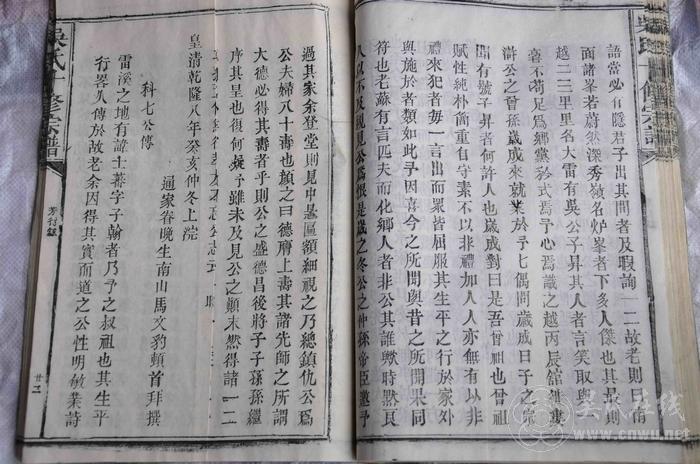 語當必有隱君子出其間者及暇詢一二故老則曰俏
面諸峯若蔚然深秀嶺名炉峯者下多人傑也其最則
越二三里里名大雷有吳公子昇其人者言笑取與
毫不苟足為鄉黨矜式焉予心焉識之越丙辰舘
公之曾孫歲成來就業於予七偶問歲成曰子之宗
聞有號子昇者何許人也歲成對曰是吾曾祖也曾祖
賦性純朴簡重自守素不以非禮加人人亦無有以非
禮來犯者毎一言出而衆皆屈服其生平之行於家外
與施於者類如此予因喜今之所聞與昔之所聞果同
符也老蘇有言匹夫而化鄉人者非公其誰歟時默艮
人以不及親見公爲恨是歲之冬公之仲孫帝臣邀予
過其家余登堂則見中悬區額細視之乃總鎮仇公爲
公夫婦八十壽也顏之曰德膺上壽其諸先師之所謂
大德必得其壽者乎則公之盛德昌後將子子孫孫繼
序其皇也復何疑予雖未及見公之顛末然得諸一二
皇清乾隆八年癸亥仲冬上浣
通家眷晚生南山馬文豹頓首拜撰
科七公傳
雷溪之地有諱士
字子翰者乃予之叔祖也其生平
行畧久傳於故老余因得其實而道之公性明敏業詩
吳氏十修宗譜
廿二
吴氏在线
cnwu.net